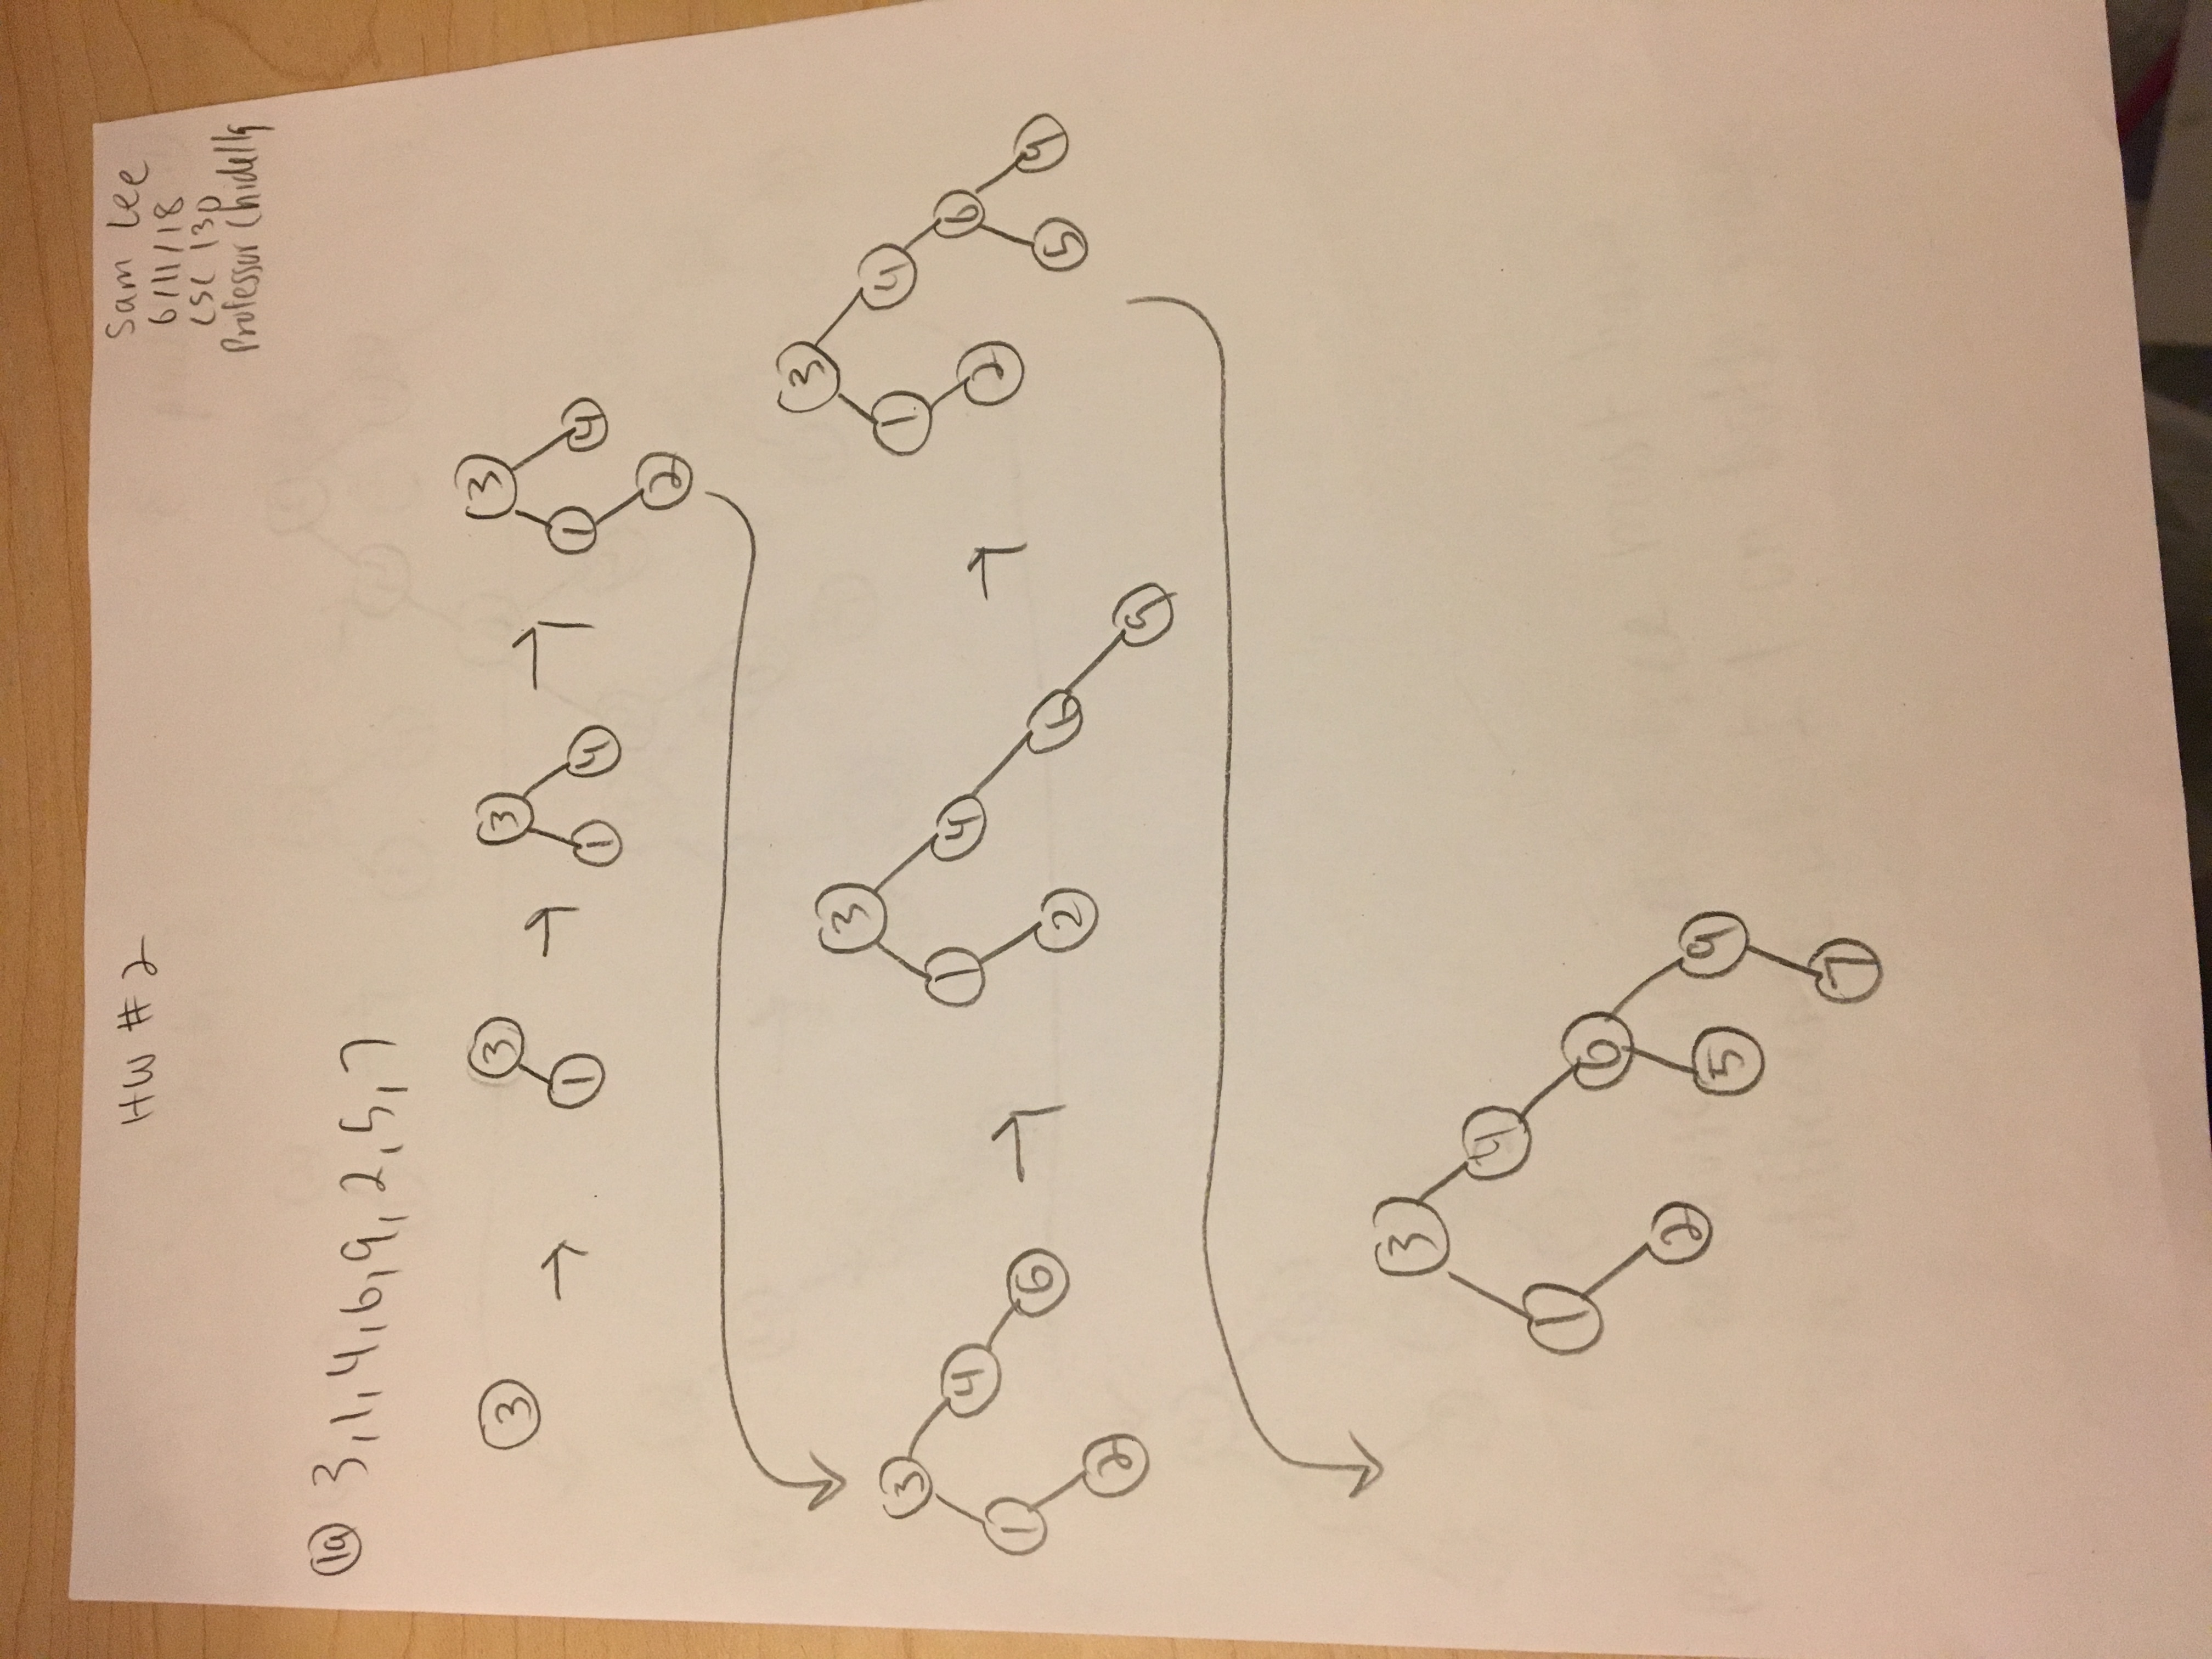 HW #2
Sam Lee
6/11/18
CSC 130
Professor Chidella
1a 3,1,4,6,9,2,5,7
3 → 3 → 3 → 3
1 1 4 1 4
2
3 → 3 → 3
1 4 1 4 1 4
6 6 2 6
2 2 9 5 9
3
4
1 6
2 5 9
7